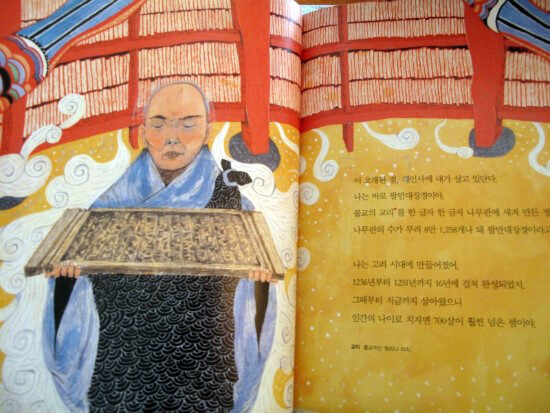 이 오래된 절, 해인사에 내가 살고 있단다.
나는 바로 팔만대장경이야.
불교의 교리*를 한 글자 한 글자 나무판에 새겨 만든
나무판의 수가 무려 8만 1,258개나 돼 팔만대장경이라고
나는 고려 시대에 만들어졌어.
1236년부터 1251년까지 16년에 걸쳐 완성되었지.
그때부터 지금까지 살아왔으니
인간의 나이로 치자면 700살이 훨씬 넘은 셈이야.
교리 종교적인 원리나 이치.